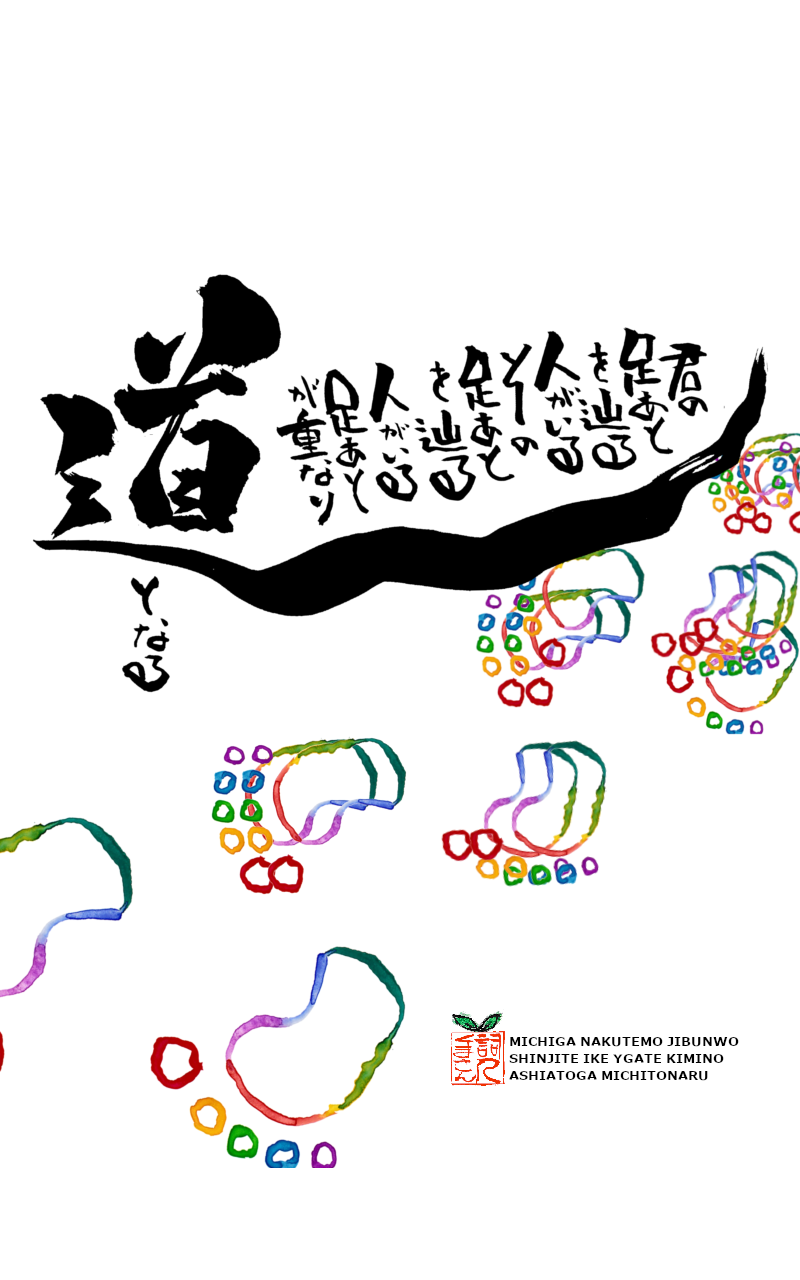 君の
足あと
を辿る
人がいる
その
足あと
を辿る
人がいる
足あと
が重なり
道
となる
MICHIGA NAKUTEMO JIBUNWO
SHINJITE IKE YGATE KIMINO
ASHIATOGA MICHITONARU